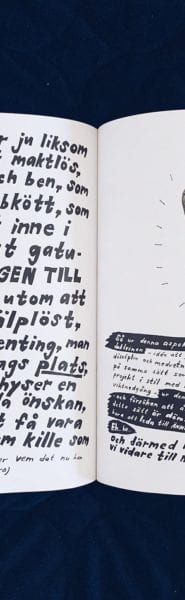 r ju liksom
t maktlös,
ch ben, som
bkött, som
t inne i
t gatu-
GEN TILL
utom att
älplöst,
enting, man
ngs plats,
hyser en
a önskan,
t få vara
m kille som
er vem det nu han
Så är denna aspekt
idén att
disciplin och medvetna
på samma sätt som
projekt i stil med
viktnedgång är
och försöken att
detta sätt är dömd
bara att leda till
Eh, ja.
och därmed
vi vidare till